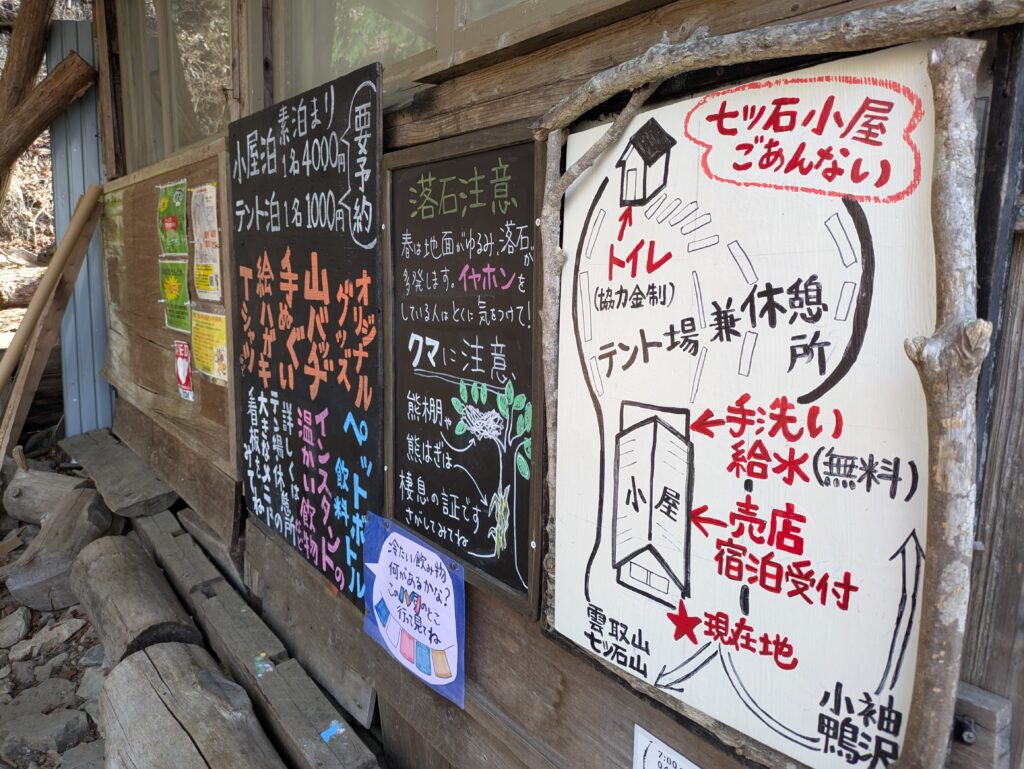 素泊まり
小屋泊 1名 4000円
テント泊 1名 1000円
要予約
オリジナル
グッズ
山バッヂ
手ぬぐい
絵ハガキ
Tシャツ
ペットボトル
飲料
インスタントの
温かい飲み物
詳しくは
テン場休憩所の
大きな
看板みてね
落石注意
春は地面がゆるみ、落石が
多発します。イヤホンを
している人はとくに気をつけて!
クマに注意
熊棚や
熊はぎは
棲息の証です
さがしてみてね
冷たい飲み物
何があるかな?
このハタのとこ
行って見てね
七ツ石小屋
ごあんない
トイレ
(協力金制)
テント場兼休憩所
手洗い
給水(無料)
小屋
売店
宿泊受付
現在地
雲取山
七ツ石山
小袖
鴨沢
7:00